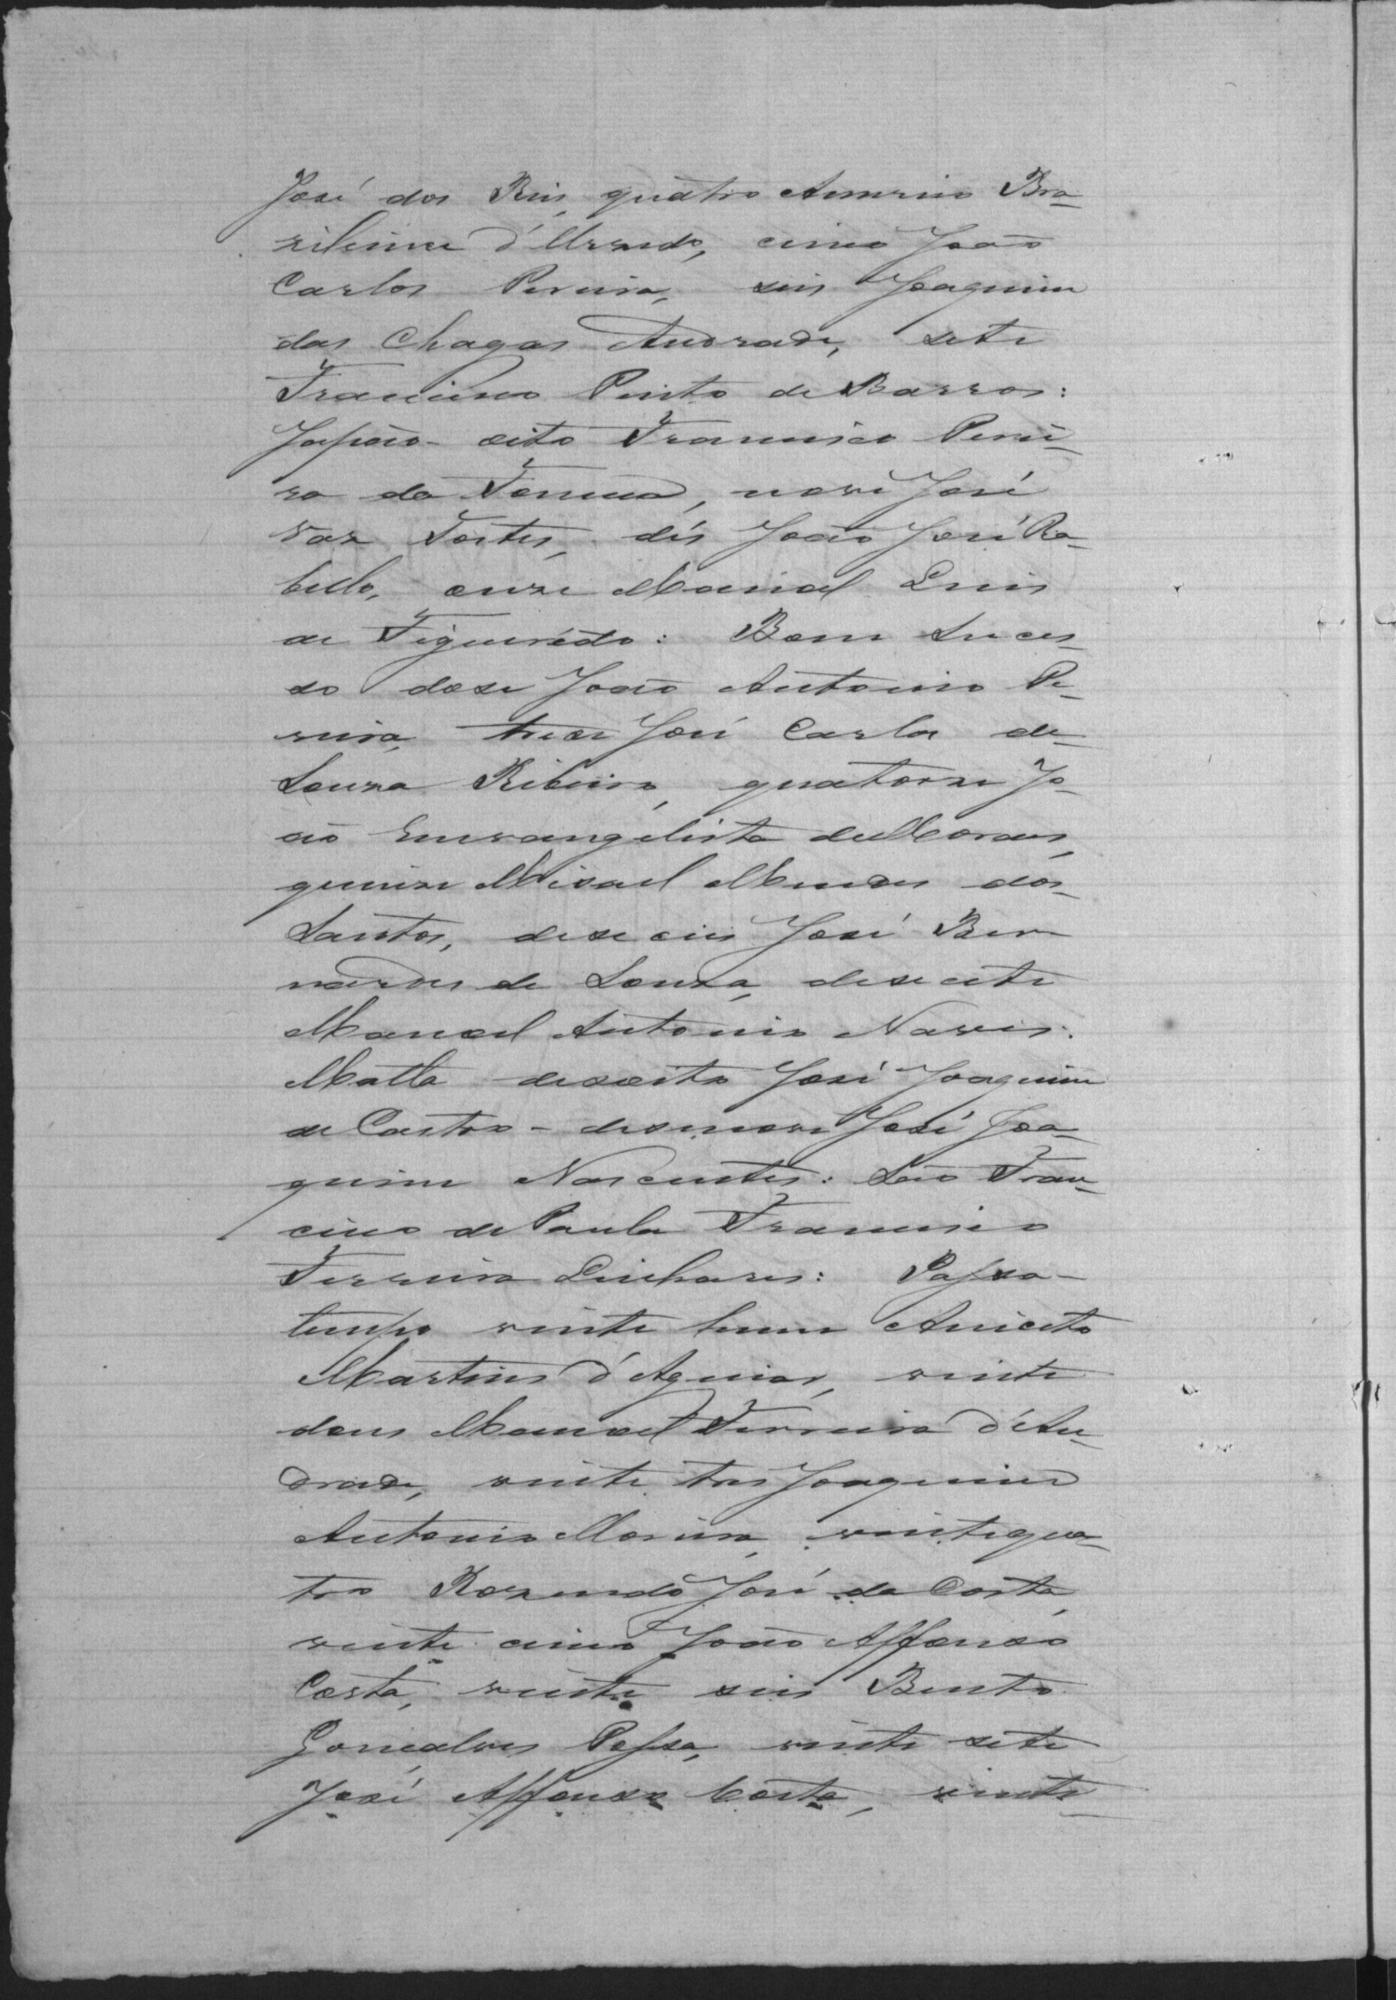 José dos Reis, quatro Americo Bra-
zileiro d'Azevedo, cinco João
Carlos Pereira, seis Joaquim
das Chagas Andrade, sete
Francisco Pinto de Barros:
Japão - oito Francisco Perei-
ra da Fonseca, nove José
Vaz Fortes, dés João José Ra-
bello, onze Manoel Luis
de Figueirêdo: Bom Suces-
so dose João Antonio Pe-
reira, treze José Carlos de
Souza Ribeiro, quatorze Jo-
ão Envangelista de Moraes,
quinze Misael Mendes dos
Santos, deseseis José Ber
nardes de Souza, desesete
Manoel Antonio Naves:
Matta desoito José Joaquim
de Castro - desenove José Joa-
quim Nascentes: São Fran-
cisco de Paula Francisco
Ferreira Linhares: Passa-
tempo vinte hum Aniceto
Martins d'Aguiar, vinte
dous Manoel Ferreira d'An-
drade, vinte tres Joaquim
Antonio Moreira, vinte qua-
tro Rozendo José da Costa,
vinte cinco João Affonso
Costa, vinte seis Bento
Gonçalves Passa, vinte sete
José Affonso Costa, vinte